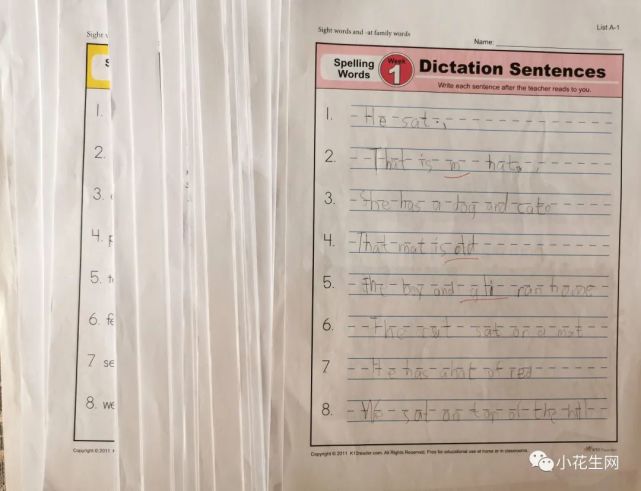 Sight
List A-1
Sight words and -at family words
Name:
Spelling Words
Week 1
Dictation Sentences
Write each sentence after the teacher reads to you.
1. He sat.
2. That is m hat.
3. She has a dog and cat.
4. That mat is old
5. The boy and ran home
6. The cat sat on a mat
7 He has a hat of red
8. We sat on top of the
1.
2.
3.
4.
5. t
6. fe
7 se
8. we
Copyright © 2011 K1
Copyright © 2011 K12reader.com. All Rights Reserved. Free for educational use at home or in classrooms.
小花生网